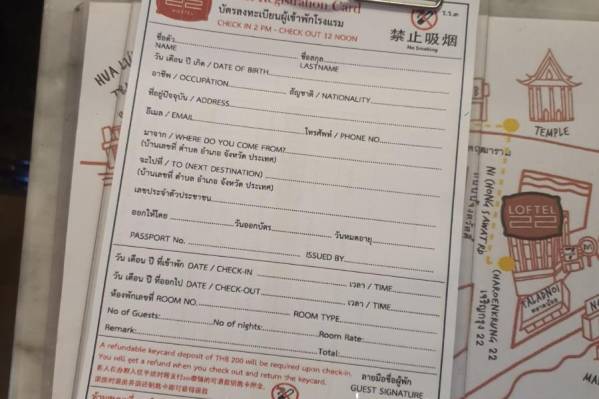 22
HOSTEL
Registration Card
บัตรลงทะเบียนผู้เข้าพักโรงแรม
CHECK IN 2 PM - CHECK OUT 12 NOON
ร.ร.๓
禁止吸烟
No Smoking
ชื่อตัว
ชื่อสกุล
NAME
LASTNAME
วัน เดือน ปี เกิด / DATE OF BIRTH
อาชีพ / OCCUPATION
สัญชาติ / NATIONALITY
ที่อยู่ปัจจุบัน / ADDRESS
อีเมล / EMAIL
โทรศัพท์ / PHONE NO.
มาจาก / WHERE DO YOU COME FROM?
(บ้านเลขที่ ตำบล อำเภอ จังหวัด ประเทศ)
จะไปที่ / TO (NEXT DESTINATION)
(บ้านเลขที่ ตำบล อำเภอ จังหวัด ประเทศ)
เลขประจำตัวประชาชน
ออกให้โดย
วันออกบัตร
วันหมดอายุ
PASSPORT No.
ISSUED BY
วัน เดือน ปี ที่เข้าพัก DATE / CHECK-IN
เวลา / TIME
วัน เดือน ปี ที่ออกไป DATE / CHECK-OUT
เวลา / TIME
ห้องพักเลขที่ ROOM NO.
ROOM TYPE
No of Guests:
No of nights:
Room Rate:
Remark:
Total:
A refundable keycard deposit of THB 200 will be required upon check-in.
You will get a refund when you check out and return the keycard.
ลายมือชื่อผู้พัก
GUEST SIGNATURE
TEMPLE
LOFTEL
22
TALADNOI
ตลาดน้อย
CHAROENKRUNG 22
เจริญกรุง 22